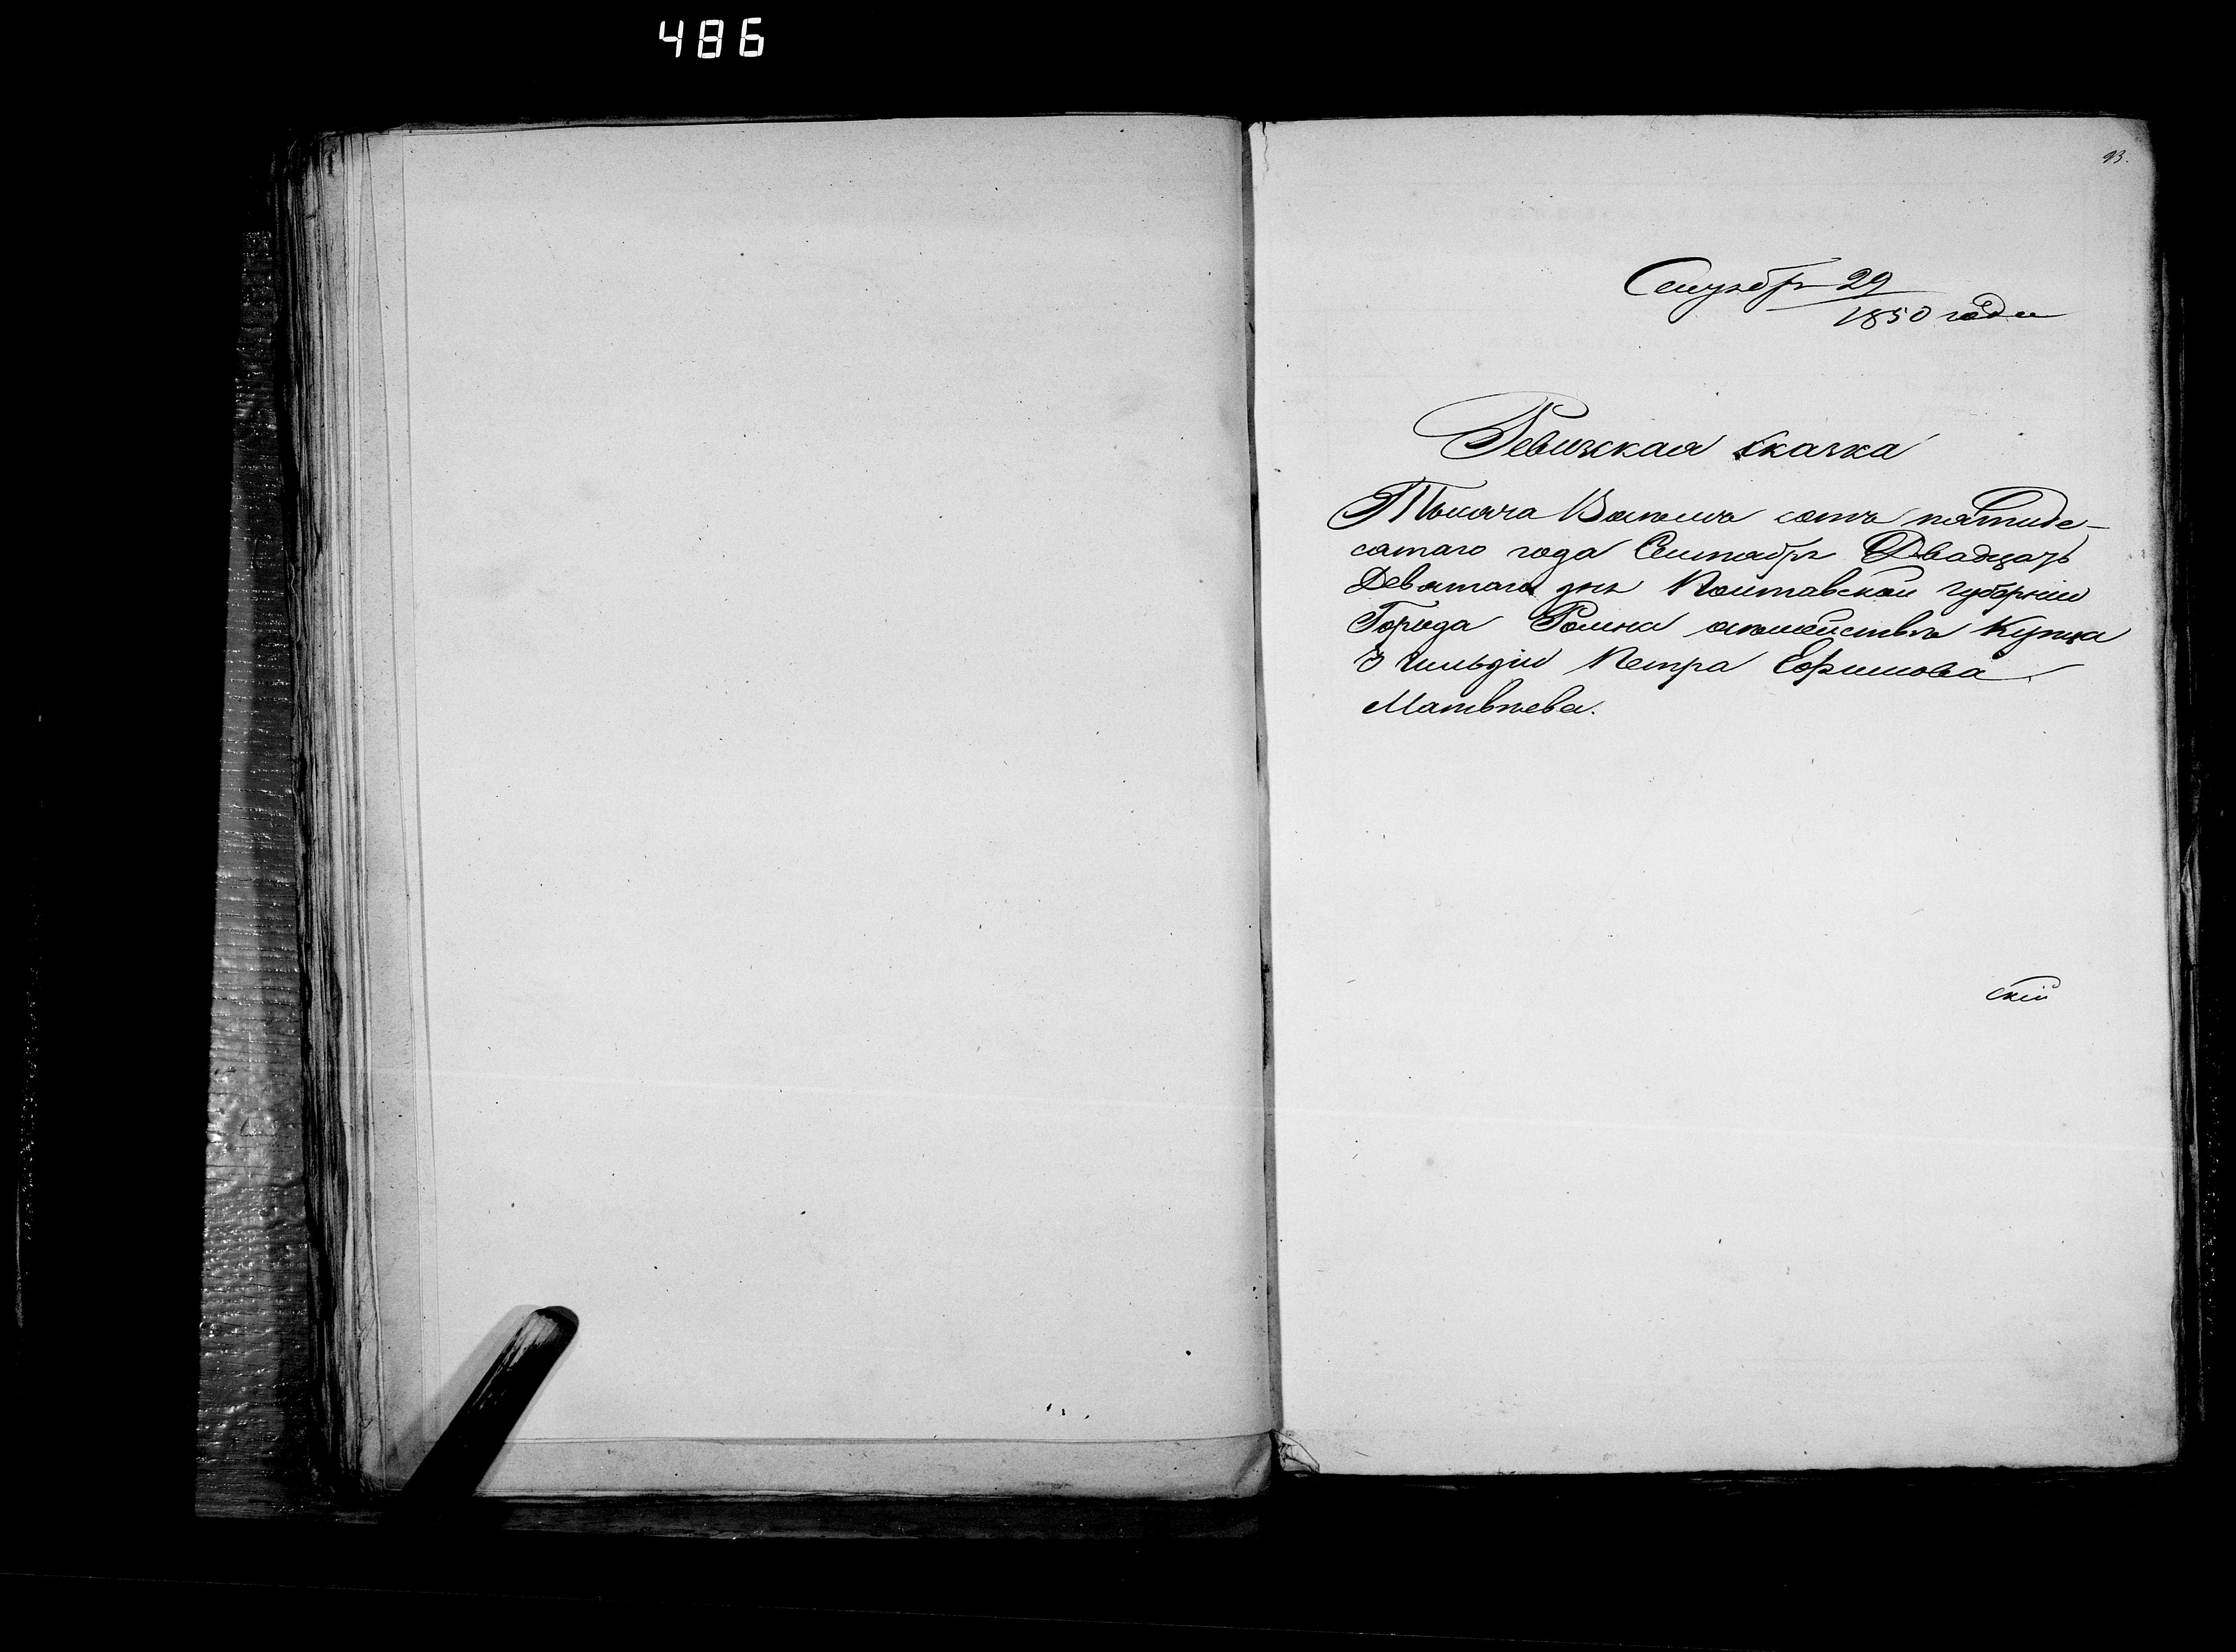 486
93.
Сентября 29
1850 года
Ревизская сказка
Тысяча Восемь сотъ пятиде-
сятаго года Сентября Двадцать
Девятаго дня Полтавской губерніи
Города Ромна семействѣ Купца
3 гильдіи Петра Ефимова
Матвѣева.
скій